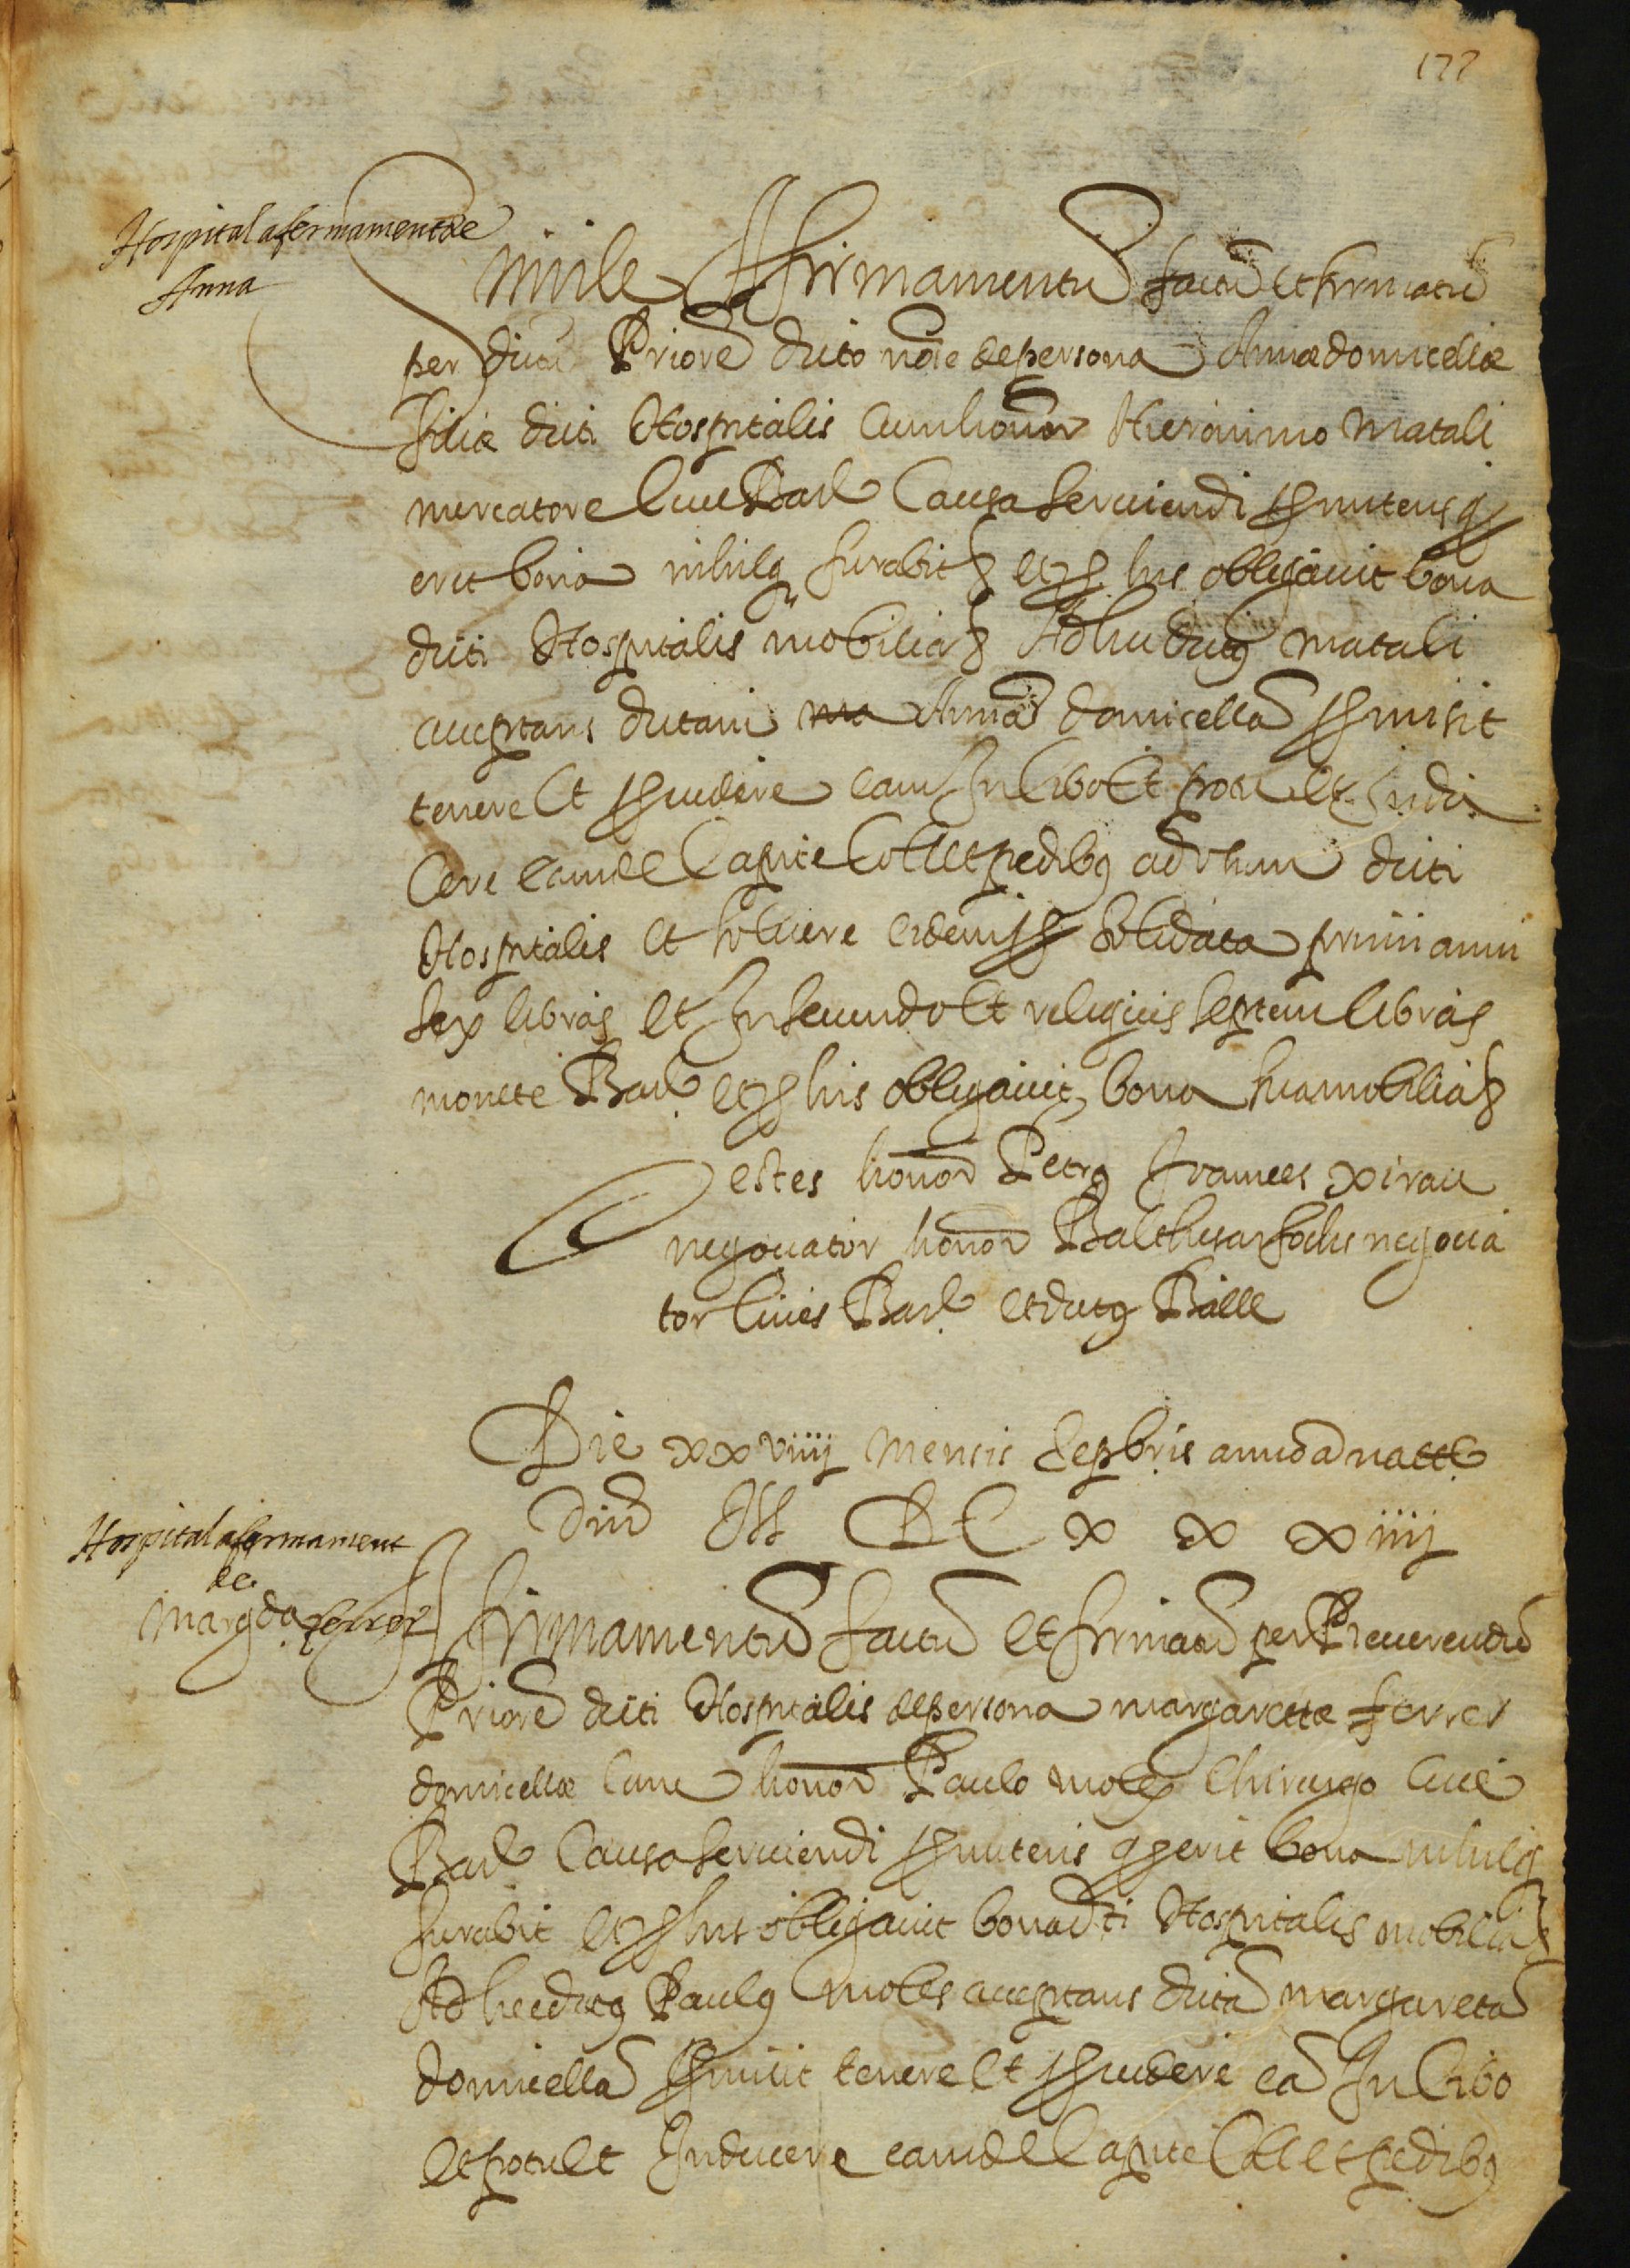 177
Hospital afermament de
Anna
Simile Affirmamentū factū et firmatū
per dictū Priorē dicto noīe de persona Annæ domicellæ
filiæ dicti Hospitalis cum honor Hieronimo Matali
mercatore cive Barł causa serviendi promitens q
erit bona nihilq furabit et pro his obligavit bona
dicti Hospitalis mobilia Ad hec dictus Matali
acceptans dictam Annā domicellā promisit
tenere et providere eam In cibo et potu et Indu
cere eamdē capite collo et pedibus ad usum dicti
Hospitalis et solvere eidem pro solidata primi anni
sex libras et In secundo et reliquis septem libras
monete Barł et pro his obligavit bona sua mobilia
Testes honor Petrus Frances Xirau
negociator honor Balthasar negocia
tor cives Barł et dictus Batlle
Die xxviiij mensis Septēbris anno a natte
Dn̄i M DC x x xiiij
Hospital afermament
de
Margda ferrer
Affirmamentū factū et firmatū per Rever­endū
Priorē dicti Hospitalis de persona Margaretæ Ferrer
domicellæ cum honor Paulo Moles Chirurgo cive
Barł causa serviendi promitens q erit bona nihilq
furabit et pro his obligavit bona dti Hospitalis mobilia
Ad hec dictus Paulus Moles acceptans dictā Margaretā
domicellā promisit tenere et providere eā In cibo
et potu et Inducere eamdē capite collo et pedibus